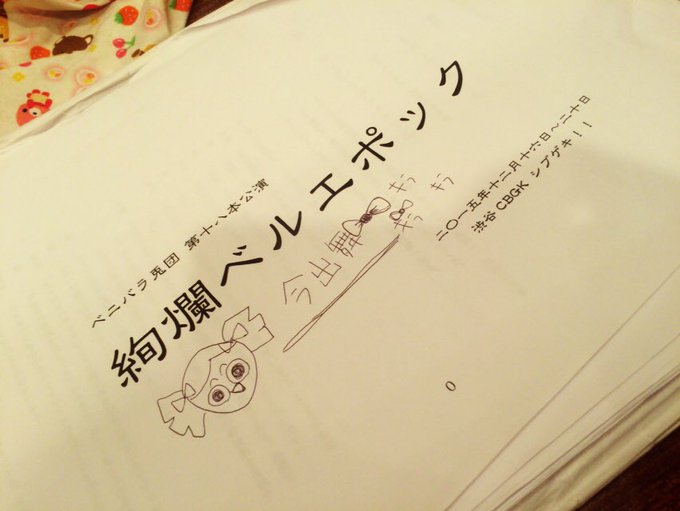 ベニバラ兎団 第十八本公演
絢爛ベルエポック
今出舞
二〇一五年十二月十六日〜二十日
渋谷 CBGK シブゲキ!!
0